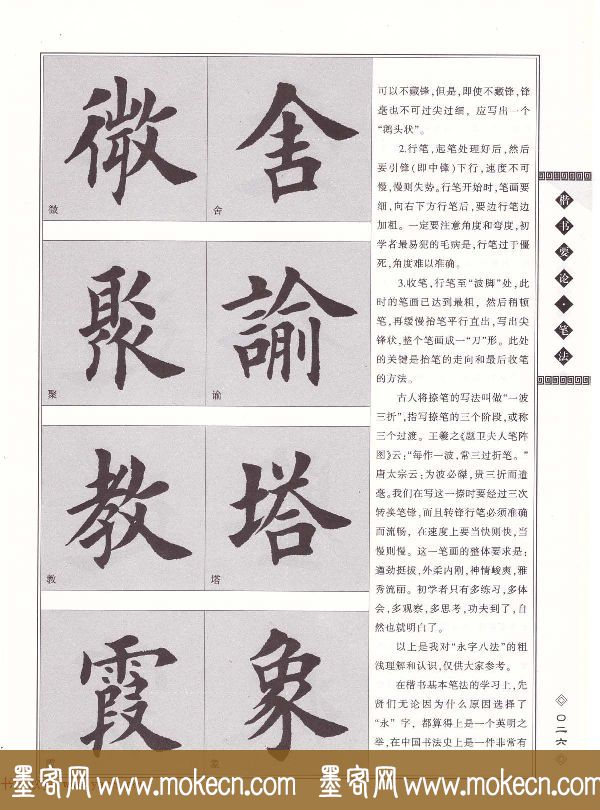 微
舍
微
舍
聚
諭
聚
谕
教
塔
教
塔
霞
象
霞
象
可以不藏锋,但是,即使不藏锋,锋
毫也不可过尖过细。应写出一个
“鹅头状”。
2.行笔,起笔处理好后,然后
要引锋(即中锋)下行,速度不可
慢,慢则失势。行笔开始时,笔画要
细,向右下方行笔后,要边行笔边
加粗。一定要注意角度和弯度,初
学者最易犯的毛病是,行笔过于僵
死,角度难以准确。
3.收笔,行笔至“波脚”处,此
时的笔画已达到最粗,然后稍顿
笔,再缓慢抬笔平行直出,写出尖
锋状,整个笔画成一“刀”形。此处
的关键是抬笔的走向和最后收笔
的方法。
古人将捺笔的写法叫做“一波
三折”,指写捺笔的三个阶段,或称
三个过渡。王羲之《题卫夫人笔阵
图》云:“每作一波,常三过折笔。”
唐太宗云:为波必磔,贵三折而遣
毫。我们在写这一捺时要经过三次
转换笔锋,而且转锋行笔必须准确
而流畅,在速度上要当快则快,当
慢则慢。这一笔画的整体要求是:
遒劲挺拔,外柔内刚,神情峻爽,雅
秀流丽。初学者只有多练习,多体
会,多观察,多思考,功夫到了,自
然也就明白了。
以上是我对“永字八法”的粗
浅理解和认识,仅供大家参考。
在楷书基本笔法的学习上,先
贤们无论因为什么原因选择了
“永”字,都算得上是一个英明之
举,在中国书法史上是一件非常有
楷书要论·笔法
〇二六
墨客网 www.mokecn.com 墨客网 www.mokecn.com